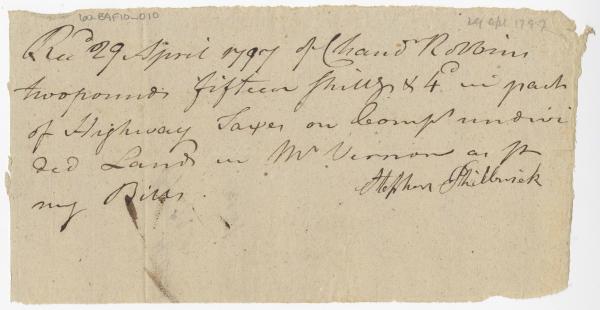 60-BAF10-010
29 Apl 1797
Recd 29 April 1797 of Chandr Robbins
two pounds fifteen shillgs & 4d in part
of Highway Taxes on Compy undivi
ded Lands in Mt Vernon as pr
my Bills.
Stephen Philbrick